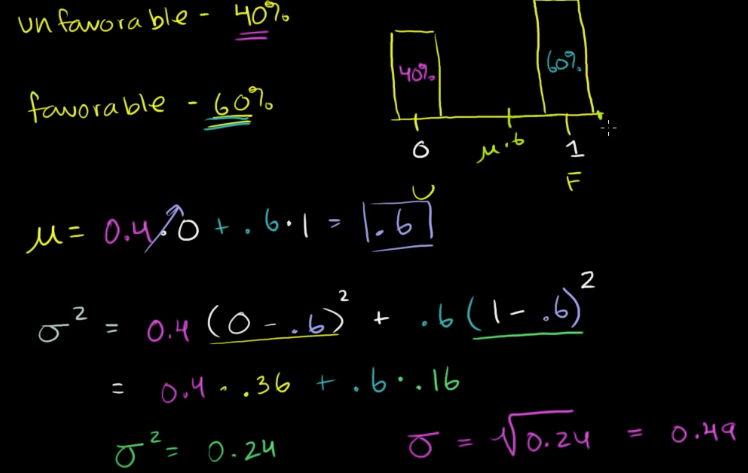 unfavorable - 40%
40%
60%
favorable - 60%
0
μ.6
1
U
F
μ = 0.4 · 0 + .6 · 1 = .6
σ² = 0.4 (0 - .6)² + .6 (1 - .6)²
= 0.4 · .36 + .6 · .16
σ² = 0.24
σ = √0.24 = 0.49